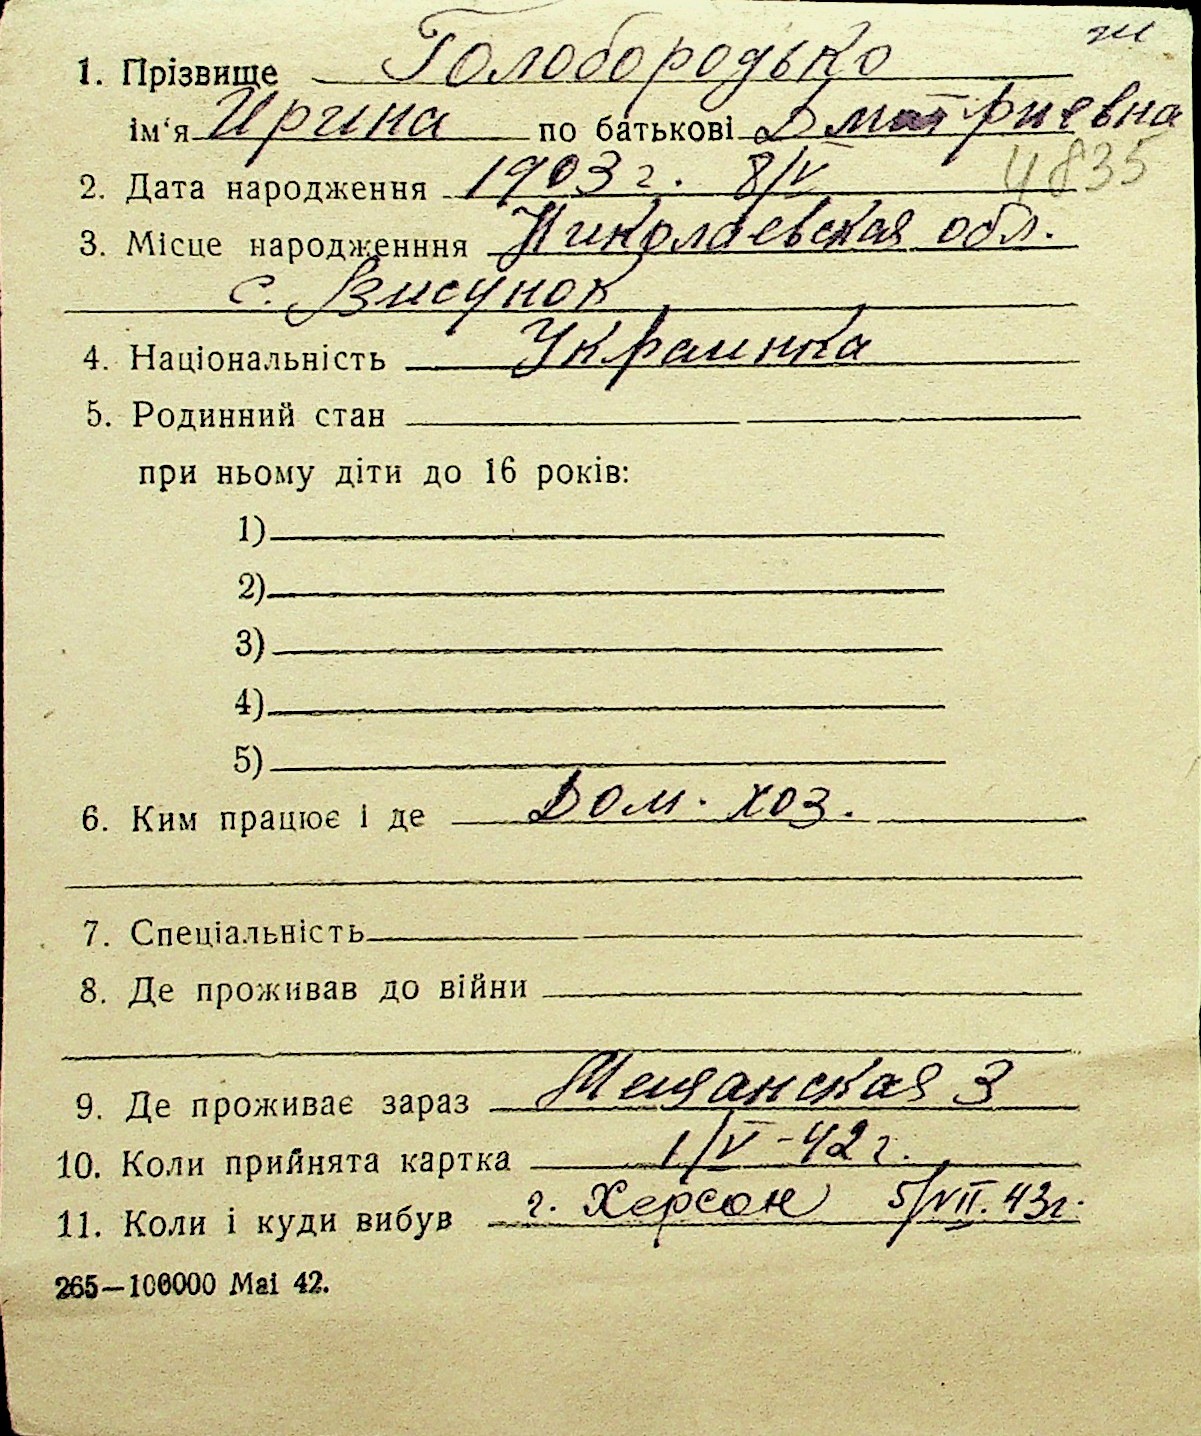 ж
1. Прізвище Голобородько
ім'я Ирина по батькові Дмитриевна
4835
2. Дата народження 1903 г. 8/V
3. Місце народженння Николаевская обл.
с. Висунок
4. Національність Украинка
5. Родинний стан
при ньому діти до 16 років:
1)
2)
3)
4)
5)
6. Ким працює і де Дом. хоз.
7. Спеціальність
8. Де проживав до війни
9. Де проживає зараз Мещанская 3
10. Коли прийнята картка 1/V-42 г.
11. Коли і куди вибув г. Херсон 5/VII. 43г.
265—100000 Mai 42.